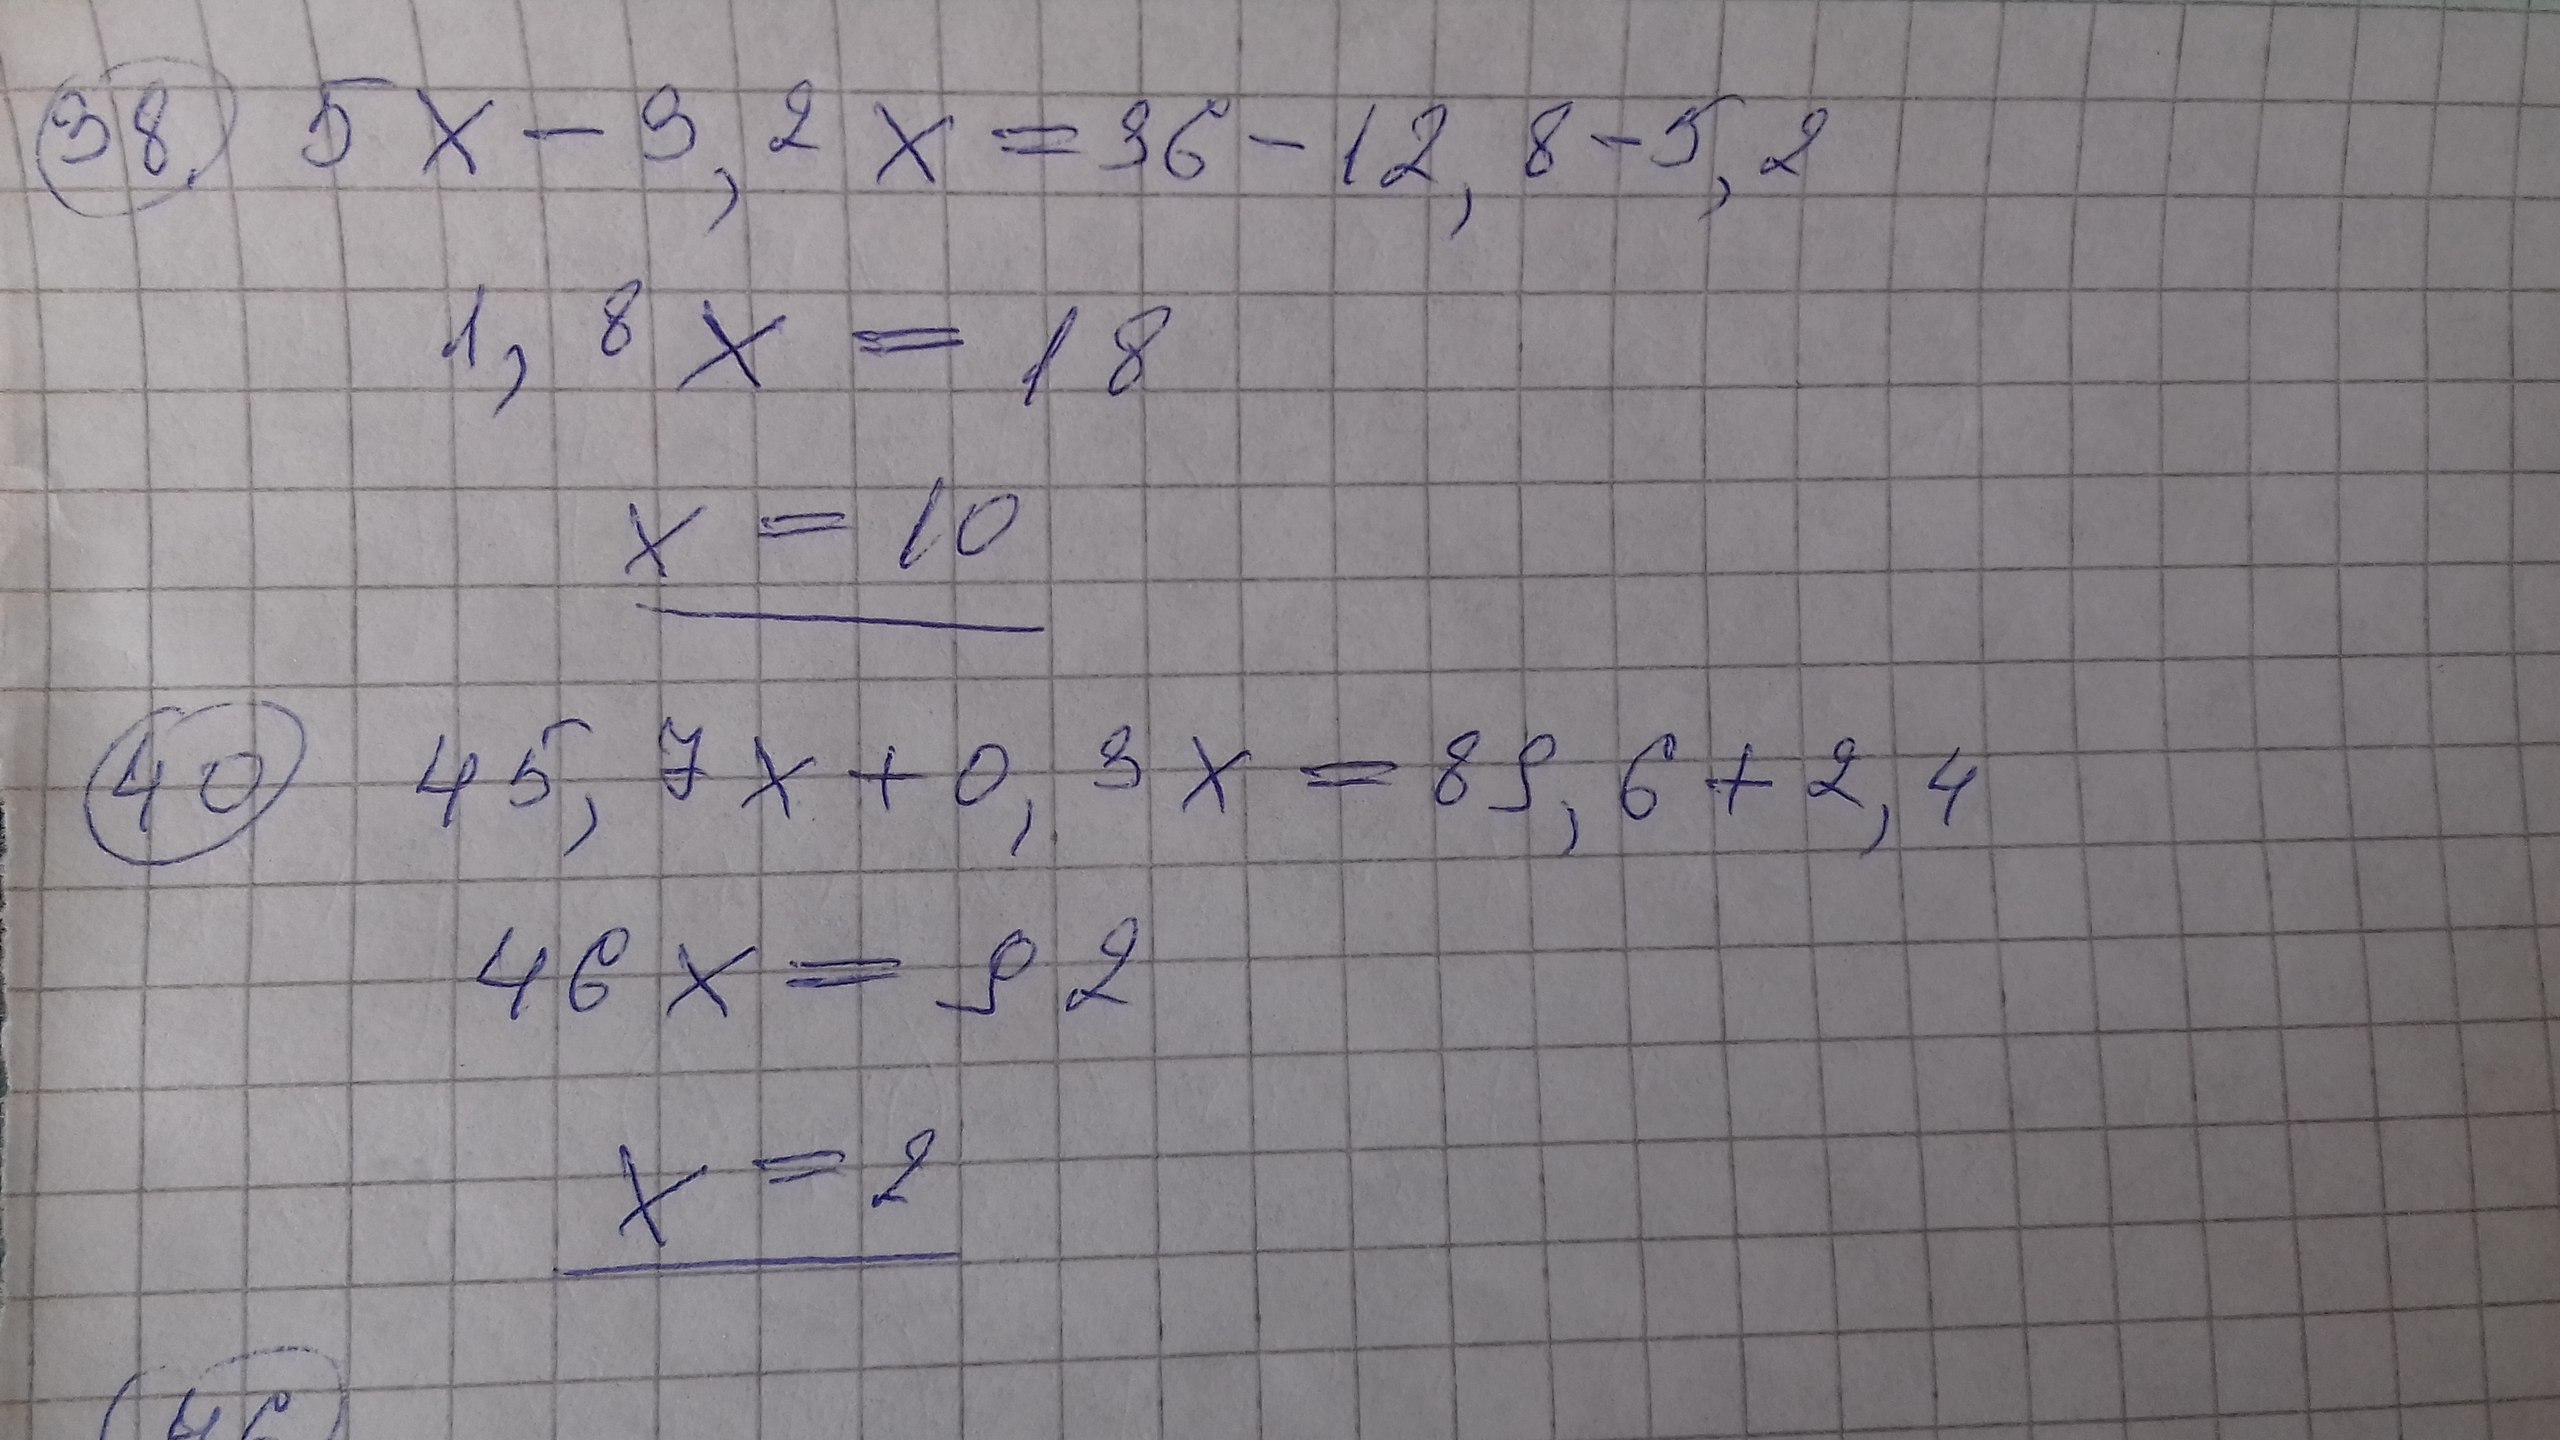 38. 5x - 3,2x = 36 - 12,8 - 5,2
1,8x = 18
x = 10
40 45,7x + 0,3x = 89,6 + 2,4
46x = 92
x = 2
46